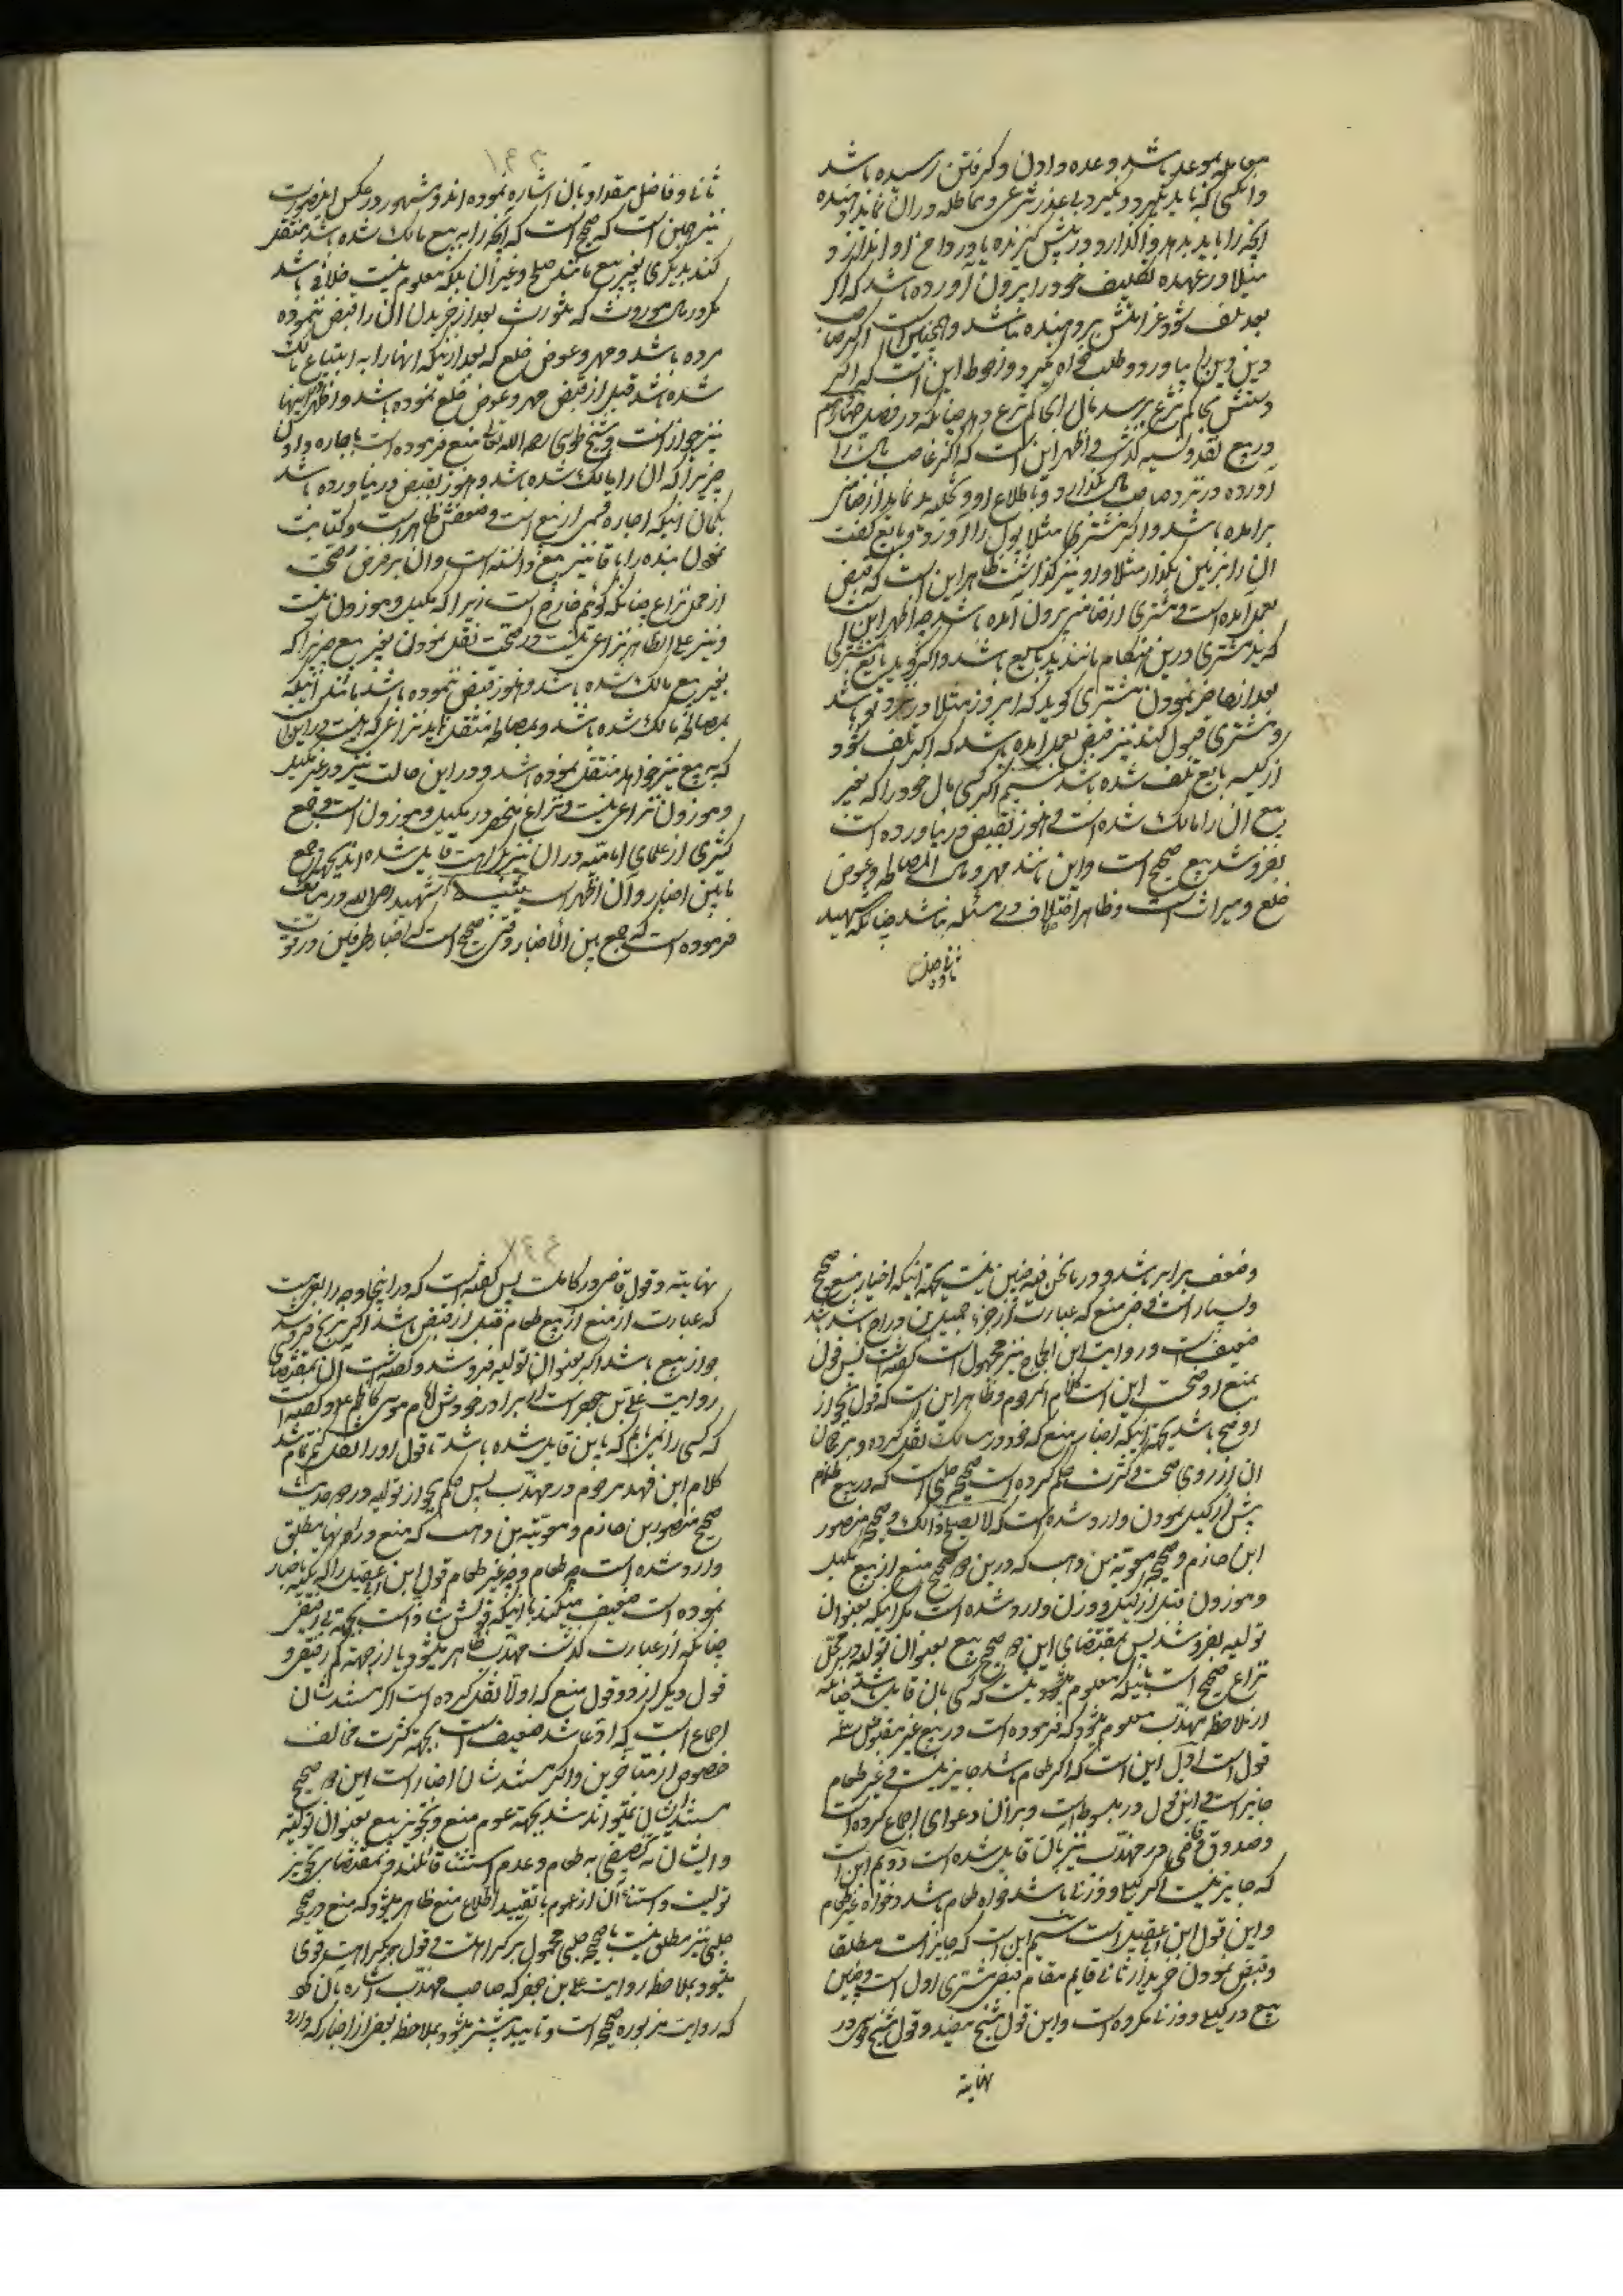 معامله بموعد باشد و وعده دادن و گرفتن رسیده باشد
و آنکسی که باید بگیرد و نگیرد بی عذر شرعی و مماطله در آن نماید دهنده
آنچه را باید بدهد واگذارد و در پیش گیرنده یا در دامن او اندازد و
مثلا در عهده تکلیف خود را بیرون آورده باشد که اگر
بعد تلف شود غرامتش بر دهنده نباشد و همچنین است اگر صاحب
دین دین را بیاورد و طلب خواه نگیرد و احوط این است که اگر
دستش بحاکم شرع برسد مال را بحاکم شرع دهد چنانکه در فصل چهارم
در بیع نقد و نسیه گذشت و اظهر این است که اگر غاصب مال را
آورده در نزد صاحب مال گذارد و باطلاع او و نگیرد باید از ضامنی
برآمده باشد و اگر مشتری مثلا پول را آورد و بایع گفت
آن را بر زمین بگذار مثلا و او نیز گذاشت ظاهر این است که قبض
بعمل آمده است و مشتری از ضامنی بیرون آمده باشد چه اظهر این است
که ید مشتری درین هنگام مانند ید بایع باشد و اگر گوید بایع بمشتری
بعد از حاضر نمودن مشتری گوید که امروز مثلا در نزد تو باشد
و مشتری قبول کند نیز قبض بعمل آمده باشد که اگر تلف شود
از کیسه بایع تلف شده باشد سیم اگر کسی مال خود را که بغیر
بیع آن را مالک شده است و هنوز بقبض در نیاورده است
بفروشد بیع صحیح است و این مانند مهر و مال المصالحه و عوض
خلع و میراث است و ظاهرا اختلاف در مسئله نباشد چنانکه شهید
ثانی و فاضل
ثانی و فاضل مقداد بآن اشاره نموده اند و مشهور در عکس این صورت
نیز چنین است که صحیح است که آنچه را به بیع مالک شده باشد منتقل
کند بدیگری بغیر بیع مانند صلح و غیر آن بلکه معلوم نیست خلافی باشد
مگر در مال موروث که مورث بعد از خریدن آن را قبض ننموده
مرده باشد و مهر و عوض خلع که بعد از اینکه آنها را به ابتیاع مالک
شده باشد قبل از قبض مهر و عوض خلع نموده باشد و اظهر در اینها
نیز جواز است و شیخ طوسی رحمه الله تعالی منع فرموده است باجاره دادن
چیزیرا که آن را مالک شده باشد و هنوز بقبض در نیاورده باشد
بگمان اینکه اجاره قسمی از بیع است و ضعفش ظاهر است و کتابت
نمودن بنده را باقا نیز بیع دانسته است و آن بر فرض صحت
از محل نزاع چنانکه گوئیم خارج است زیرا که مکیل و موزون نیست
و نیز علی الظاهر نزاعی نیست در صحت نقل نمودن بغیر بیع چیزیرا که
بغیر بیع مالک شده باشد و هنوز قبض ننموده باشد مانند اینکه
بمصالحه مالک شده باشد و بمصالحه منتقل نماید نزاعی که هست در این است
که به بیع نیز خواهد منتقل نموده باشد و در این حالت نیز در غیر مکیل
و موزون نزاعی نیست و نزاع منحصر در مکیل و موزون است و جمع
کثیری از علمای امامیه در آن نیز بکراهت قایل شده اند بجهت جمع
مابین اخبار و آن اظهر است شهید رحمه الله در مسالک
فرموده است که جمع بین الاخبار وقتی صحیح است که اخبار طرفین در قوت
و ضعف برابر باشد و در مانحن فیه چنین نیست بجهة اینکه اخبار منع صحیح
و بسیار است و خبر منع که عبارت از خبر جمیل بن دراج باشد
ضعیف است و روایت ابن الحجاج نیز مجهول است گفته است پس قول
بمنع اوضح است این است کلام آنمرحوم و ظاهر این است که قول بجواز
اوضح باشد بجهة اینکه اخبار منع که خود در مسالک نقل کرده و بر عنوان
آن از روی صحت و کثرت حکم کرده است صحیحه حلبی است که در بیع طعام
پیش از کیل نمودن وارد شده است که لا یصلح ذالک و صحیحه منصور
ابن حازم و صحیحه معویة بن وهب که درین دو صحیح منع از بیع مکیل
و موزون قبل از کیل و وزن وارد شده است مگر اینکه بعنوان
تولیه بفروشد پس بمقتضای این دو صحیح بیع بعنوان تولیه در محل
نزاع صحیح است با اینکه معلوم میشود نیست که کسی بآن قایل باشد چنانکه
از ملاحظه مهذب معلوم میشود که فرموده است در بیع غیر مقبوض سه
قول است اول این است که اگر طعام باشد جایز نیست و غیر طعام
جایز است و این قول در مبسوط است و بر آن دعوای اجماع کرده است
و صدوق و قاضی در مهذب نیز بآن قایل شده است دویم این است
که جایز نیست اگر کیلا و وزنا باشد خواه طعام باشد و خواه غیر طعام
و این قول ابن ابی عقیل است سیم این است که جایز است مطلقا
و قبض نمودن خریدار ثانی قایم مقام قبض مشتری اول است و چنین
بیع در کیلا و وزنا مکروه است و این قول شیخ مفید و قول شیخ طوسی در
نهایه
نهایه و قول قاضی در کاملست پس گفته است که در اینجا وجه رابعی است
که عبارت از منع از بیع طعام قبل از قبض باشد اگر بربح فروشد
جواز بیع باشد اگر بعنوان تولیه فروشد و گفته است آن بمقتضای
روایت علی بن جعفر است از برادر خودش امام موسی کاظم علیه و گفته است
که کسی را نمی یابم که باین قایل شده باشد تا قول او را نقل کنم تمام شد
کلام ابن فهد مرحوم در مهذب پس حکم بجواز تولیه در دو حدیث
صحیح منصور بن حازم و معویة بن وهب که منع در آنها مطلق
وارد شده است چه طعام و چه غیر طعام قول ابن ابی عقیل را که تکیه باخبار
نموده است ضعیف میکند با اینکه قولش شاذ است بجهة بی رفیقی
چنانکه از عبارت گذشت مهذب ظاهر میشود یا از جهة کم رفیقی و
قول دیگر از دو قول منع که اولا نقل کرده است اگر مستندشان
اجماع است که ادعا شد ضعیف است بجهة کثرت مخالف
خصوص از متأخرین و اگر مستندشان اخبار است این دو صحیح
مستند ایشان نمیتواند شد بجهة عموم منع و تجویز بیع بعنوان تولیه
و ایشان به تخصیص به طعام و عدم استثنا قائلند و بمقتضای تجویز
تولیت و استثنای آن از عموم یا تقیید اطلاع منع ظاهر میشود که منع در صحیحه
حلبی نیز مطلق نیست یا صحیحه حلبی محمول بر کراهتست و قول بکراهت قوی
میشود بملاحظه روایت علی بن جعفر که صاحب مهذب اشاره بآن نمود
که روایت مزبوره صحیحه است و تایید بیشتر میشود بملاحظه بعضی از اخبار که وارد